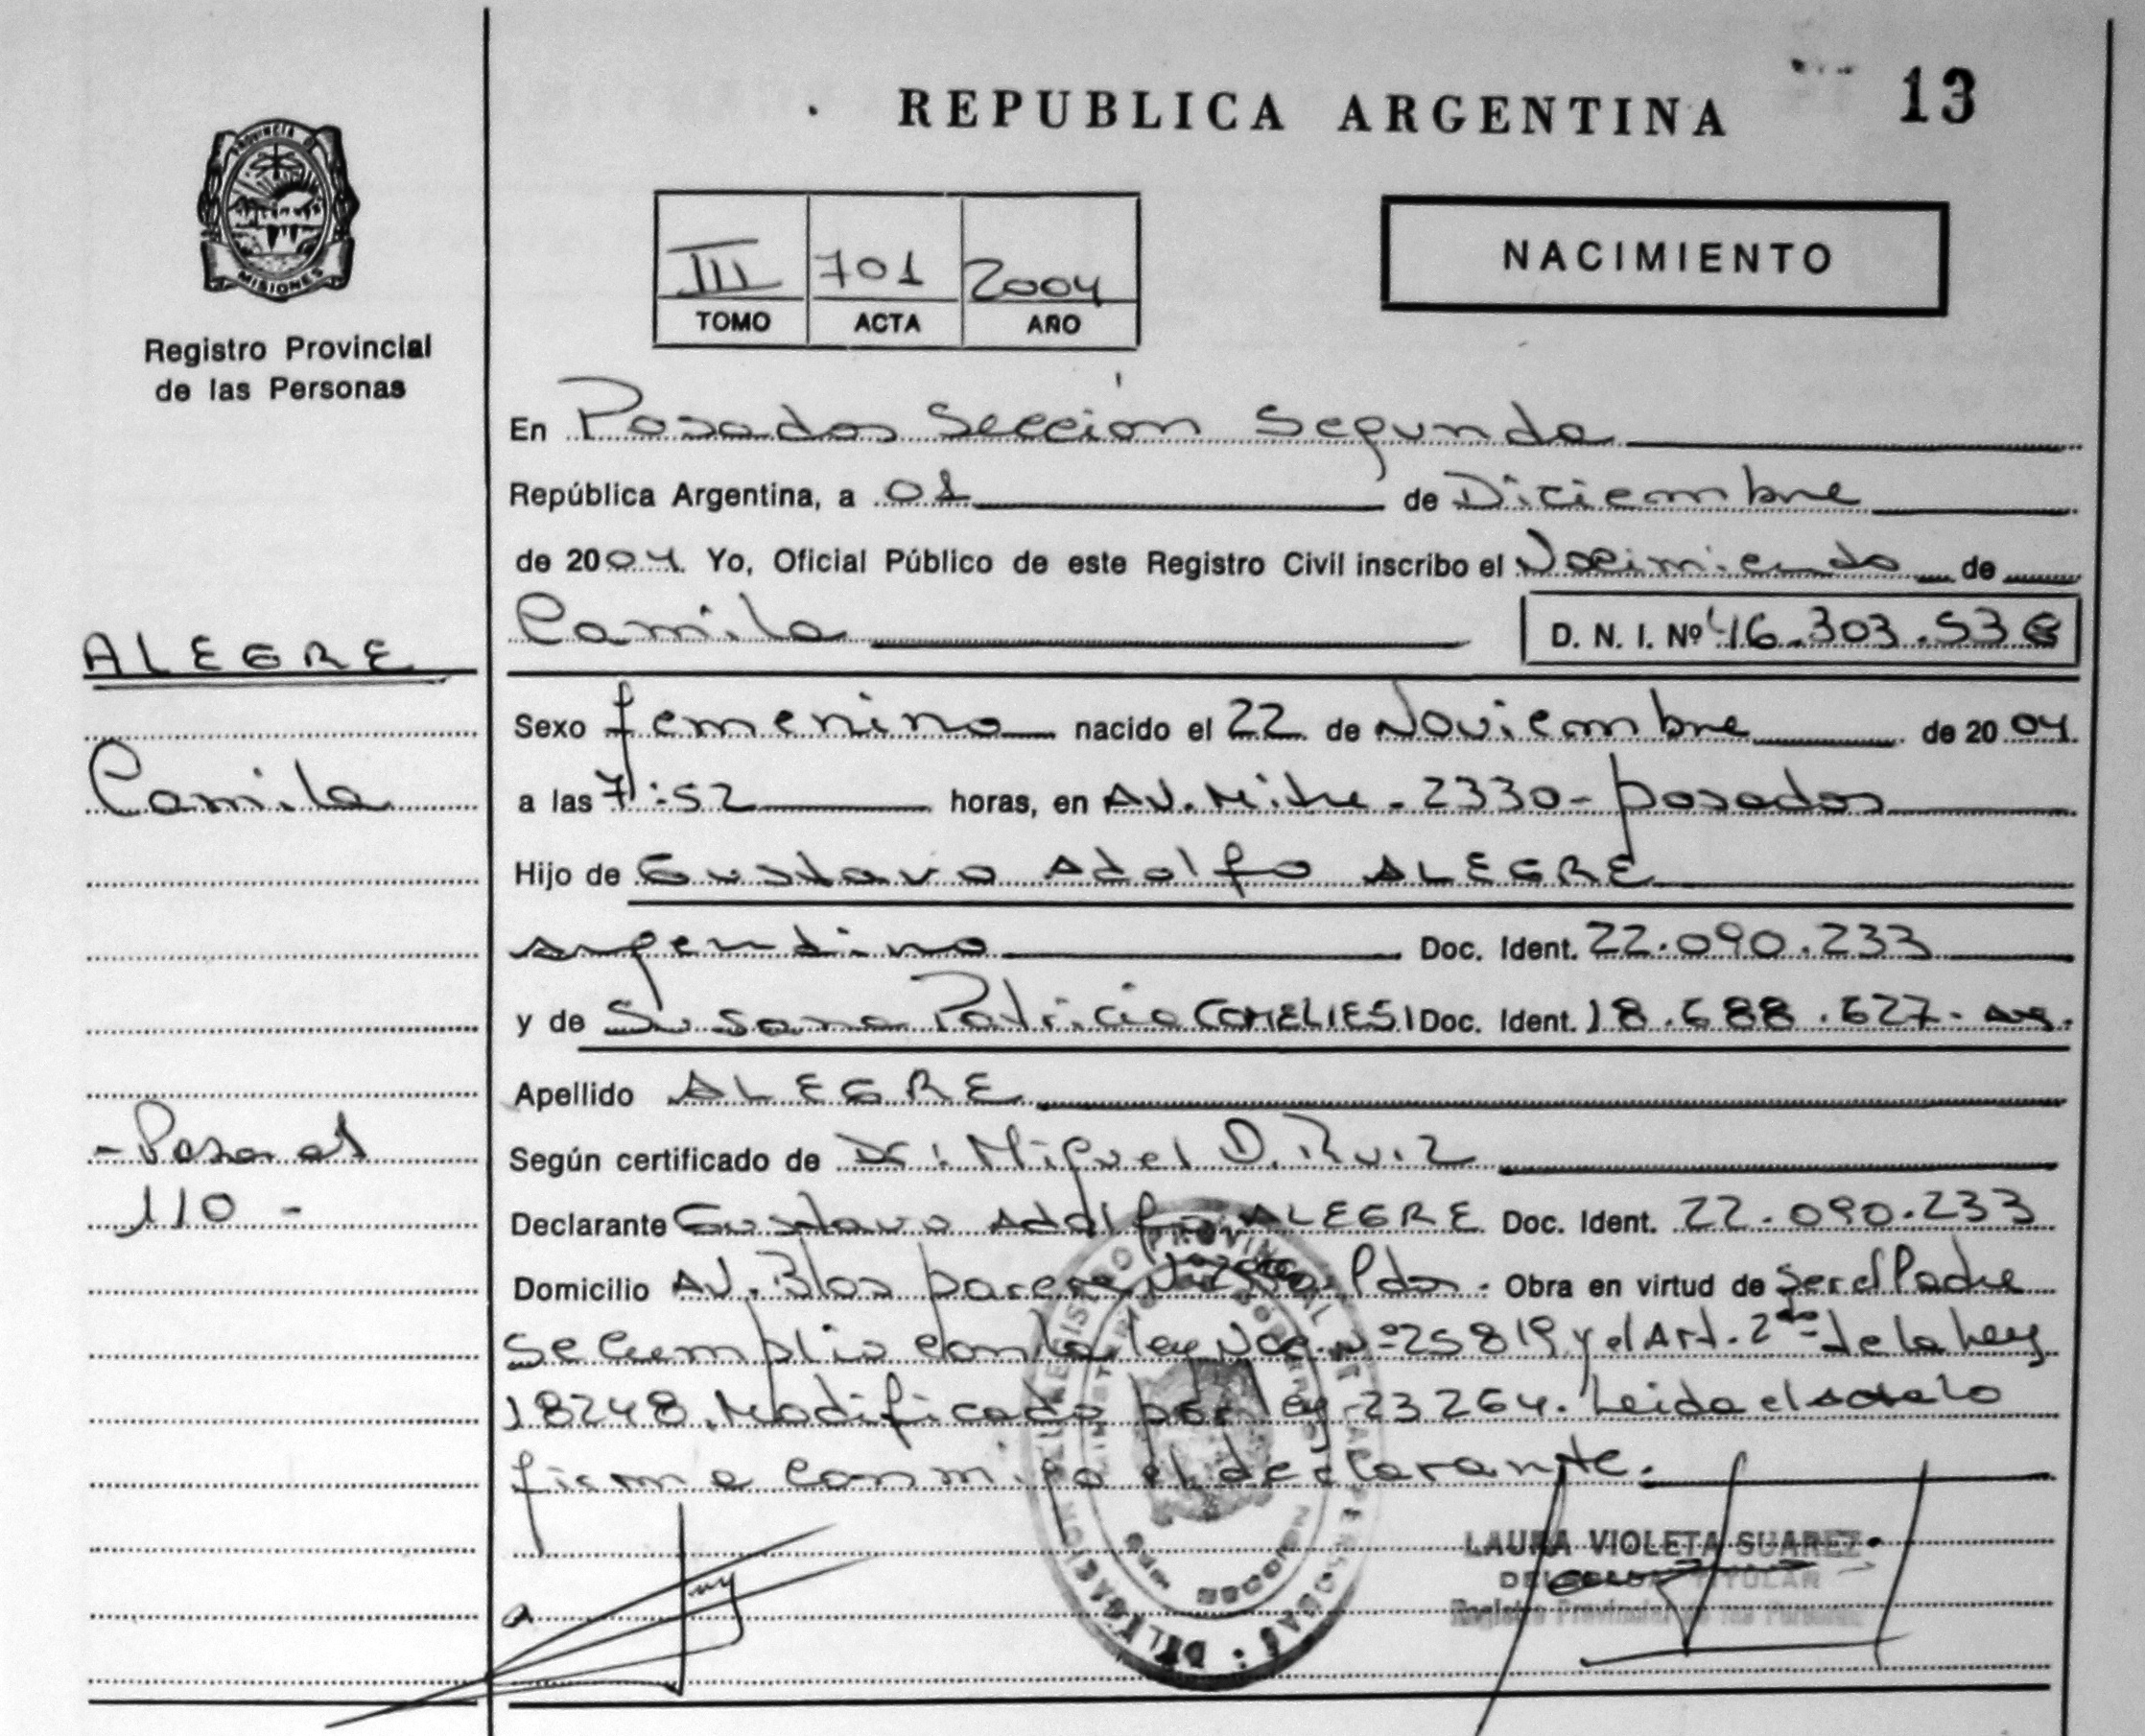 REPUBLICA ARGENTINA 13
PROVINCIA DE
MISIONES
Registro Provincial
de las Personas
III 701 2004
TOMO ACTA AÑO
NACIMIENTO
En Posadas Sección Segunda
República Argentina, a 01 de Diciembre
de 2004 Yo, Oficial Público de este Registro Civil inscribo el Nacimiento de
Camila D. N. I. Nº 46.303.536
ALEGRE
Camila
Sexo femenino nacido el 22 de Noviembre de 2004
a las 7:52 horas, en AV. Mitre - 2330 - posadas
Hijo de Gustavo Adolfo ALEGRE
argentino Doc. Ident. 22.090.233
y de Susana Patricia Doc. Ident. 18.688.627 - arg.
Apellido ALEGRE
Según certificado de Dr: Miguel D. Ruiz
110 -
Declarante Gustavo Adolfo ALEGRE Doc. Ident. 22.090.233
Domicilio AV. Blas parera Pdas - Obra en virtud de ser el Padre
Se Cumplio con la ley Nac. Nº 25819 y el Art. 2do de la Ley
18248 Modificada por ley 23264. Leida el acta lo
firma conmigo el declarante.
LAURA VIOLETA SUAREZ
DELEGADA TITULAR
Registro Provincial de las Personas
REGISTRO PROVINCIAL DE LAS PERSONAS